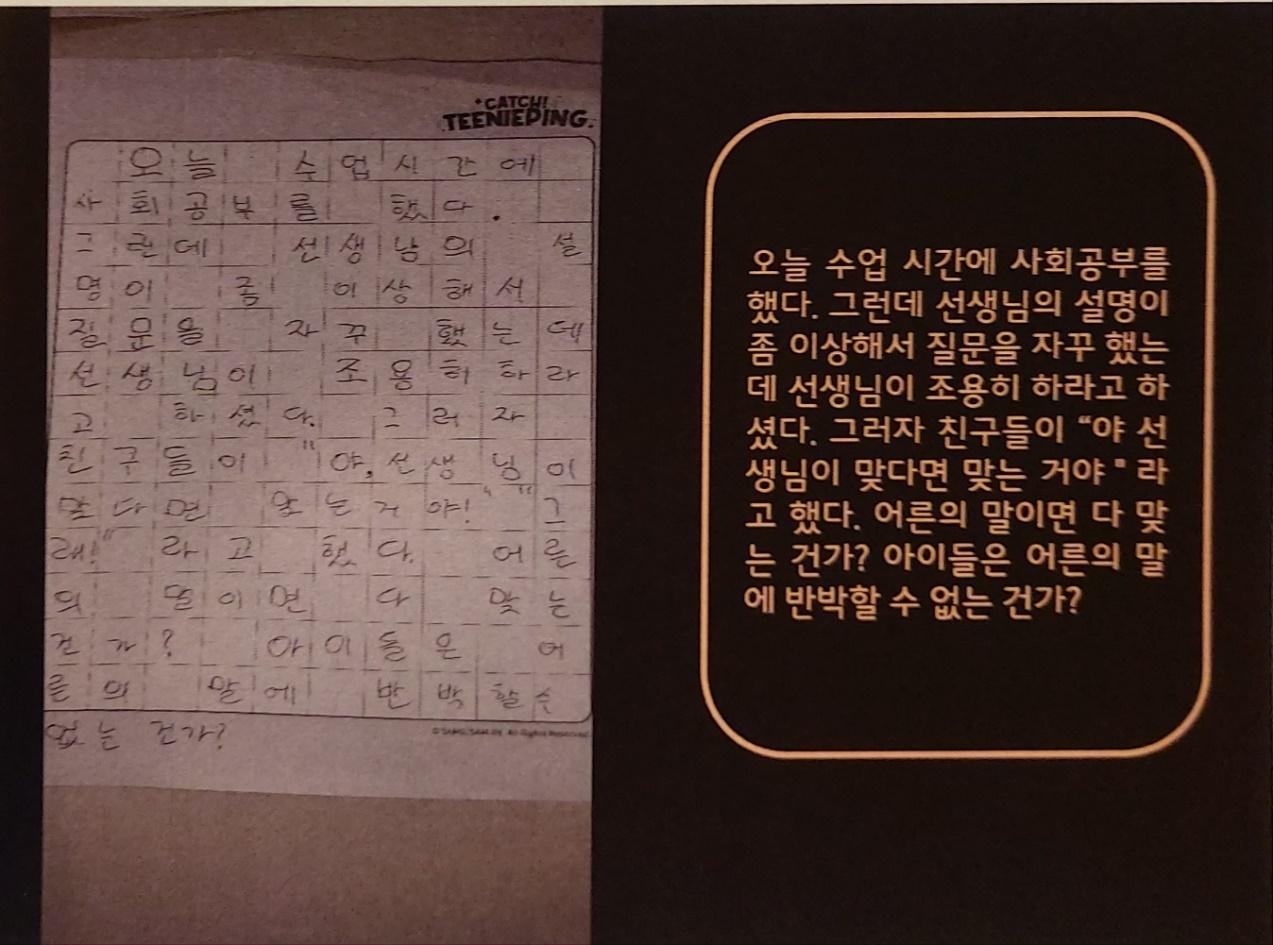 CATCH!
TEENIEPING.
오늘 수업시간에
사회공부를 했다.
그런데 선생님의 설
명이 좀 이상해서
질문을 자꾸 했는데
선생님이 조용히하라
고 하셨다. 그러자
친구들이 "야, 선생님이
맞다면 맞는거야!" "그
래!" 라고 했다. 어른
의 말이면 다 맞는
건가? 아이들은 어
른의 말에 반박할수
없는 건가?
오늘 수업 시간에 사회공부를
했다. 그런데 선생님의 설명이
좀 이상해서 질문을 자꾸 했는
데 선생님이 조용히 하라고 하
셨다. 그러자 친구들이 “야 선
생님이 맞다면 맞는 거야 " 라
고 했다. 어른의 말이면 다 맞
는 건가? 아이들은 어른의 말
에 반박할 수 없는 건가?